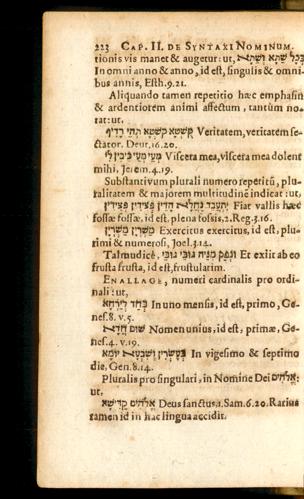 223 CAP. II. DE SYNTAXI NOMINUM.
tionis vis manet & augetur: ut, בכל שתא ושתא
In omni anno & anno, id est, singulis & omni-
bus annis, Esth. 9. 21.
Aliquando tamen repetitio hæc emphasin
& ardentiorem animi affectum, tantùm no-
tat: ut,
קשטא קשטא תהי רדיף Veritatem, veritatem se-
ctator. Deut. 16. 20.
מעי מעי Viscera mea, viscera mea dolent
mihi. Jerem. 4. 19.
Substantivum plurali numero repetitũ, plu-
ralitatem & majorem multitudinẽ indicat: ut,
יתעבד נחלא הדין פצידין פצידין Fiat vallis hæc
fossæ fossæ, id est, plena fossis, 2. Reg. 3. 16.
משרין משרין Exercitus exercitus, id est, plu-
rimi & numerosi, Joel. 3. 14.
Talmudicè, ונפק מנית גובי גובי Et exiit ab eo
frusta frusta, id est, frustularim.
ENALLAGE, numeri cardinalis pro ordi-
nali: ut,
בחד לירחא In uno mensis, id est, primo, Ge-
nes. 8. v. 5.
שום חדא Nomen unius, id est, primæ, Ge-
nes. 4. v. 19.
בעשרין ושבעא יומא In vigesimo & septimo
die, Gen. 8. 14.
Pluralis pro singulari, in Nomine Dei אלהים:
ut,
אלהים קדישא Deus sanctus. 1. Sam. 6. 20. Rarius
tamen id in hac lingua accidit.